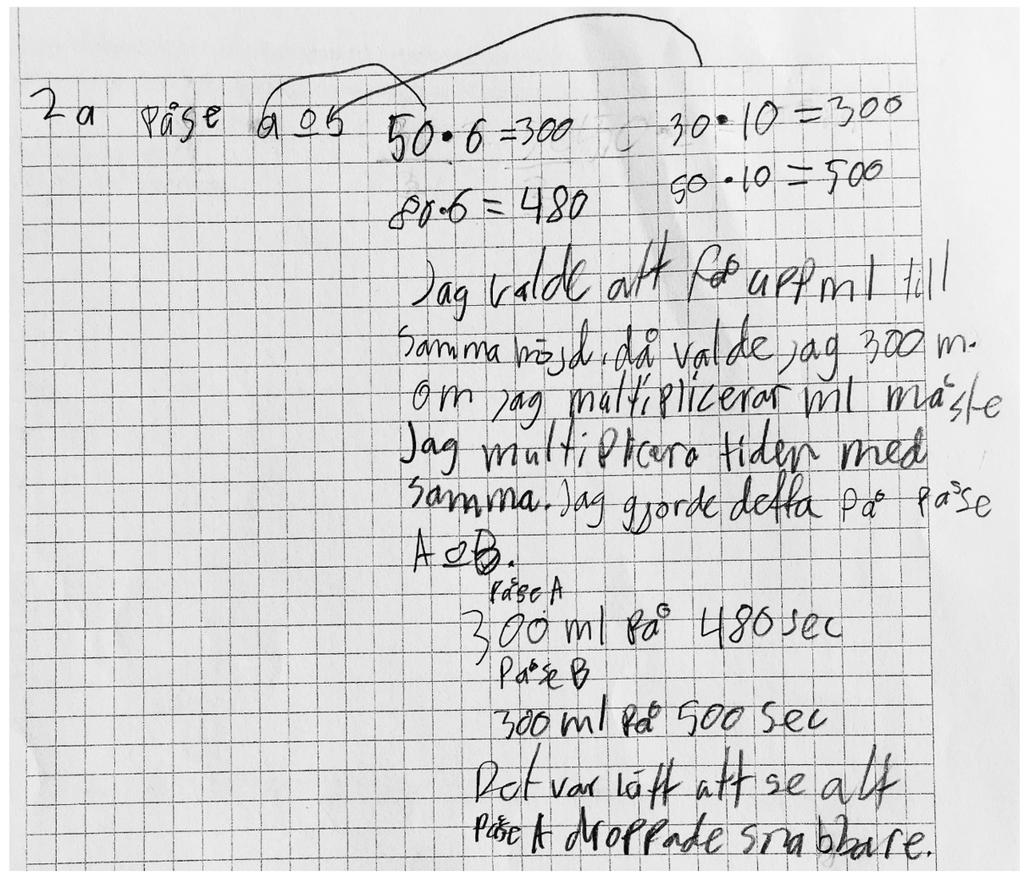 2a påse a o b 50·6=300 30·10=300
80·6=480 50·10=500
Jag valde att få upp ml till
samma höjd, då valde jag 300 m.
om jag multiplicerar ml måste
Jag multiplicera tiden med
samma. Jag gjorde detta på påse
A o B.
Påse A
300 ml på 480 sec
Påse B
300 ml på 500 sec
Det var lätt att se att
påse A droppade snabbare.